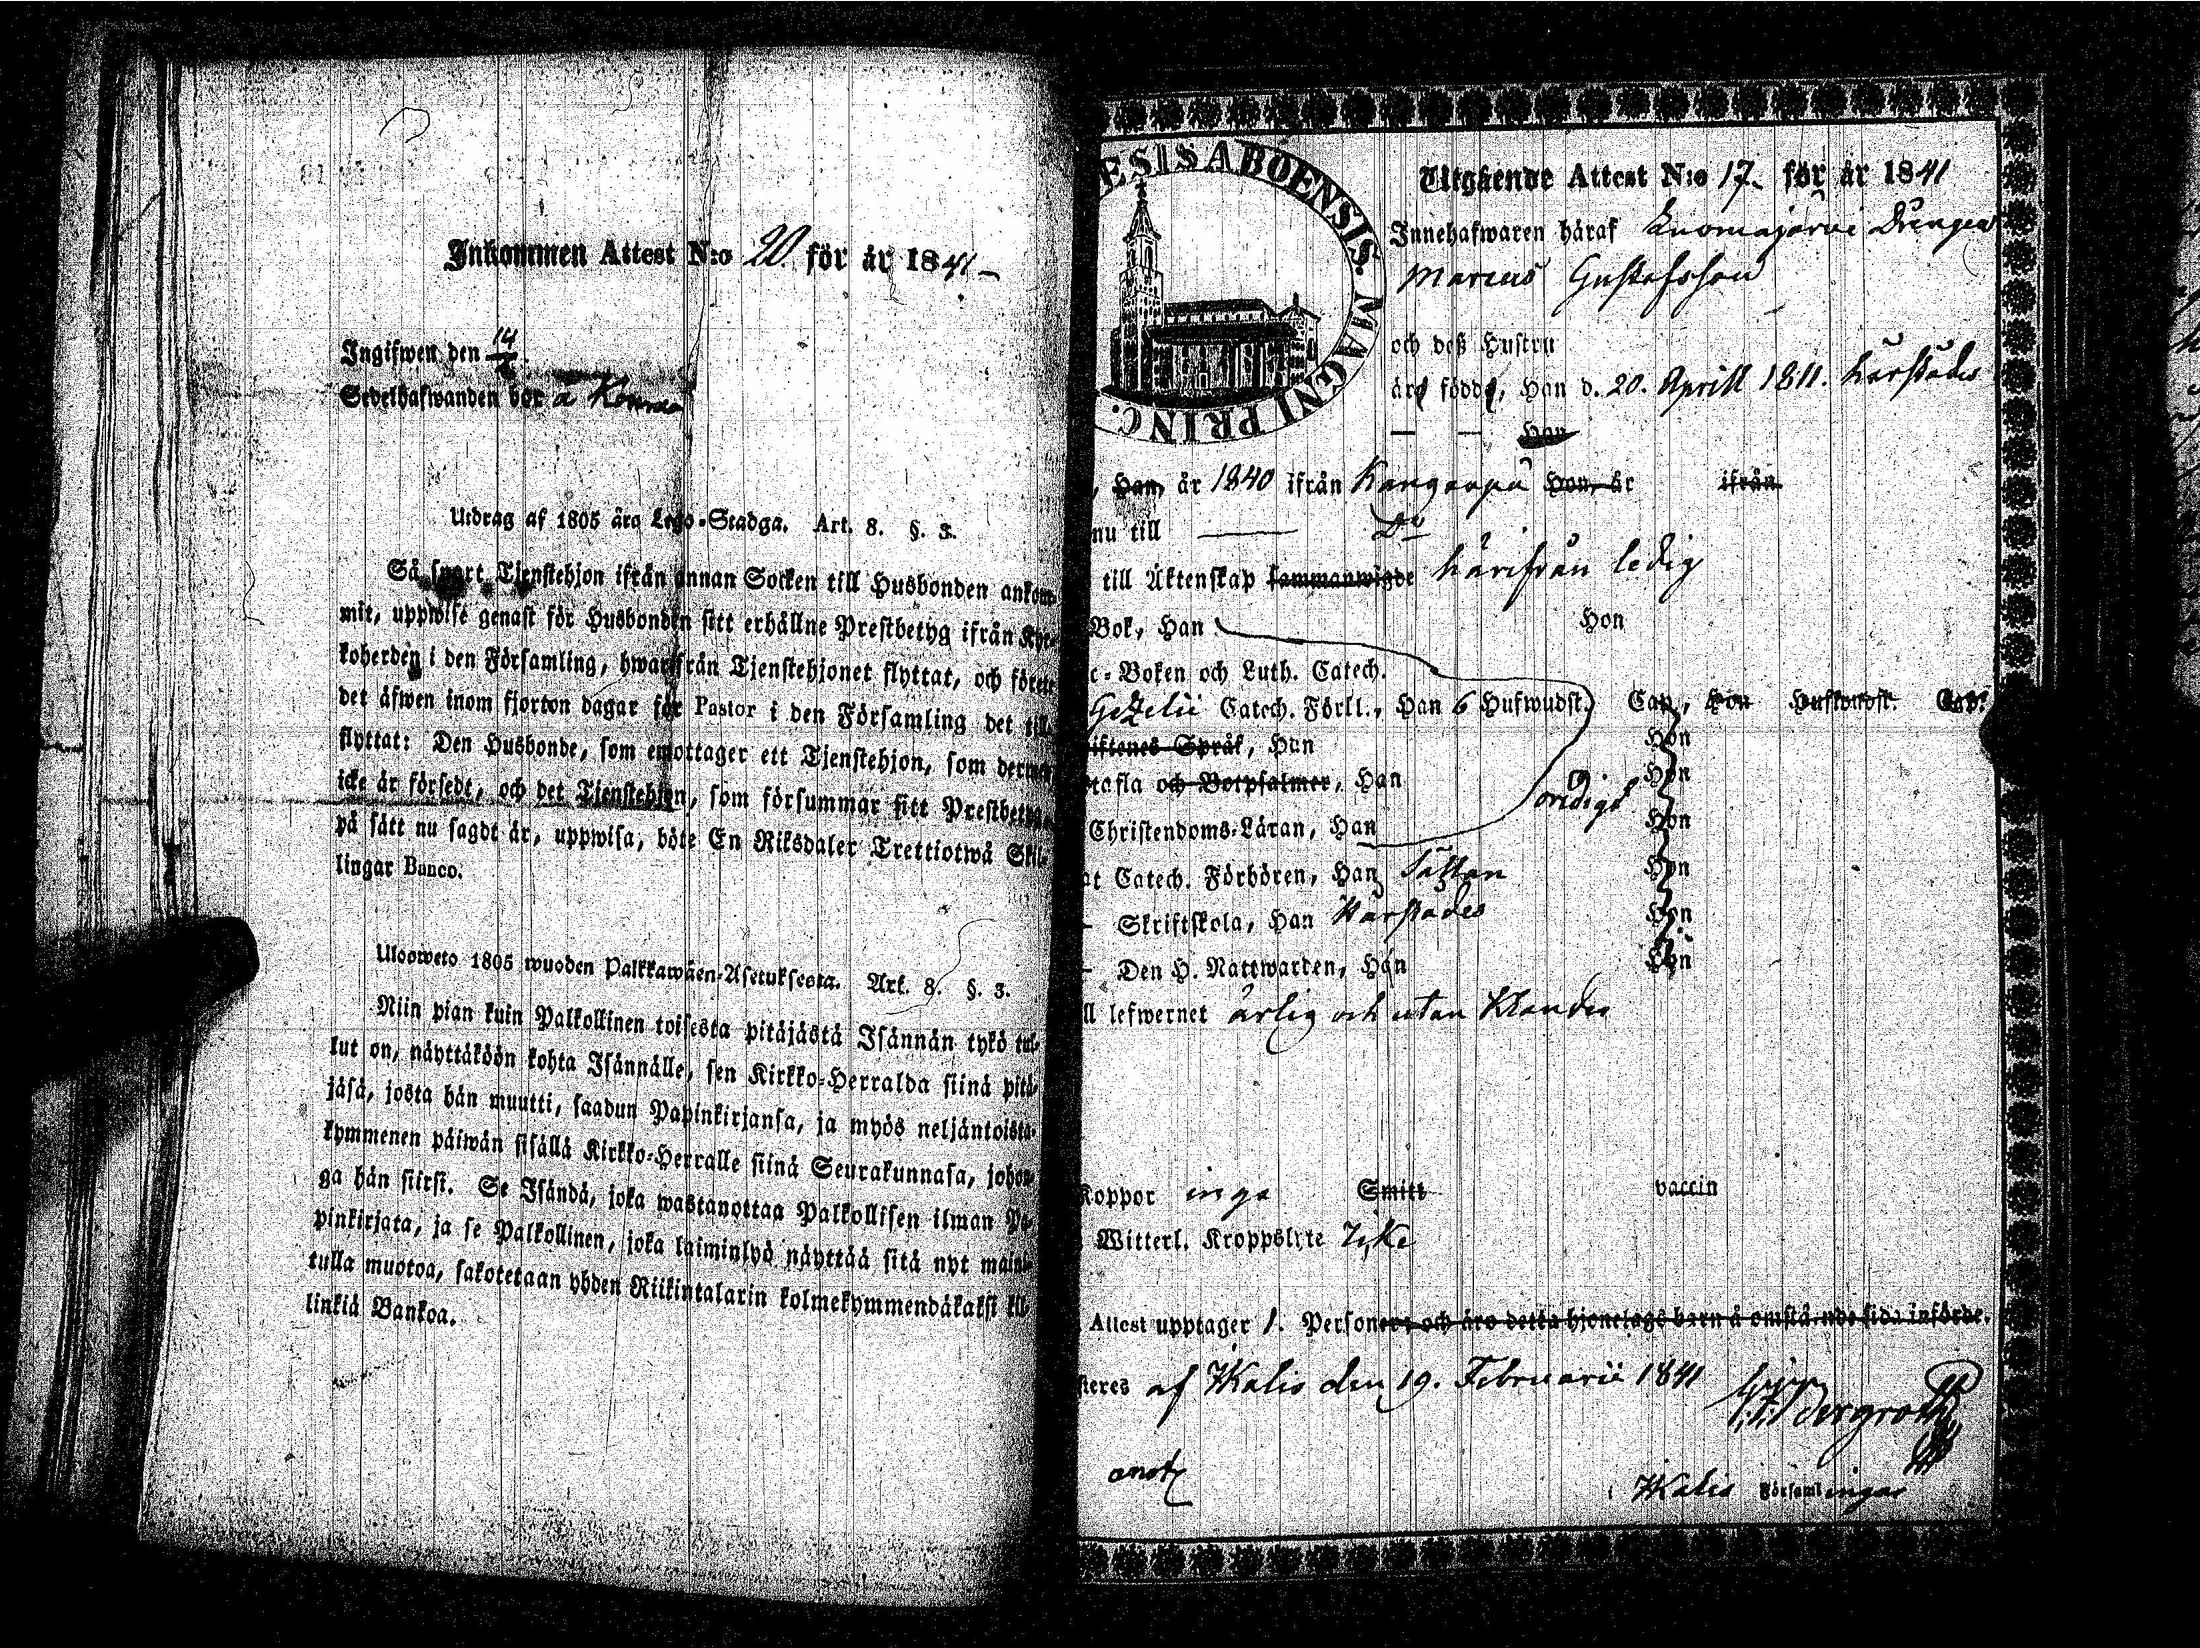 Inkommen Attest N:o 20. för år 1841
Ingifwen den 14
Sedelhafwanden bor å
Utdrag af 1805 års Lego-Stadga. Art. 8. §. 3.
Så snart Tjenstehjon ifrån annan Socken till Husbonden ankom-
mit, uppwise genast för Husbonden sitt erhållne Prestbetyg ifrån Kyr-
koherden i den Församling, hwarifrån Tjenstehjonet flyttat, och förete
det äfwen inom fjorton dagar för Pastor i den Församling det till
flyttat: Den Husbonde, som emottager ett Tjenstehjon, som dermed
icke är försedt, och det Tjenstehjon, som försummar sitt Prestbetyg
på sätt nu sagdt är, uppwisa, böte En Riksdaler Trettiotwå Skil-
lingar Banco.
Ulosweto 1805 wuoden Palkkawäen-Asetuksesta. Art. 8. §. 3.
Niin pian kuin Palkollinen toisesta pitäjästä Isännän tykö tul-
lut on, näyttäköön kohta Isännälle, sen Kirkko-Herralda siinä pitä-
jäsä, josta hän muutti, saadun Papinkirjansa, ja myös neljäntoista-
kymmenen päiwän sisällä Kirkko-Herralle siinä Seurakunnasa, johon-
ga hän siirsi. Se Isändä, joka wastanottaa Palkollisen ilman Pa-
pinkirjata, ja se Palkollinen, joka laiminlyö näyttää sitä nyt maini-
tulla muotoa, sakotetaan yhden Riikintalarin kolmekymmendäkaksi kil-
linkiä Bankoa.
ESIS ABOENSIS. MAGNI PRINC.
Utgående Attest N:o 17. för år 1841
Innehafwaren häraf Drengen
Marcus Gustafsson
och deß Hustru
äro födde, Han d. 20. Aprill 1811. härstädes
— — Hon
, Han, år 1840 ifrån Kangarpä Hon, år ifrån
nu till — Do
till Äktenskap sammanwigde härifrån ledig
Bok, Han Hon
c-Boken och Luth. Catech.
Gezelii Catech. Förkl., Han 6 Hufwudst. Cap., Hon Hufwudst. Cap.
iftenes Språk, Han Hon
tafla och Botpsalmer, Han Hon
Christendoms-Läran, Han Hon
at Catech. Förhören, Han Sällan Hon
Skriftskola, Han härstädes Hon
Den H. Nattwarden, Han Hon
ll lefwernet ärlig och utan klander
Koppor inga Smitt vaccin
Witterl. Kroppslyte Icke
Attest upptager 1. Personer, och äro detta hjonelags barn å omstående sida införde.
steres af Kalis den 19. Februarii 1841
Bergroth
anot
Kalis Församlingar